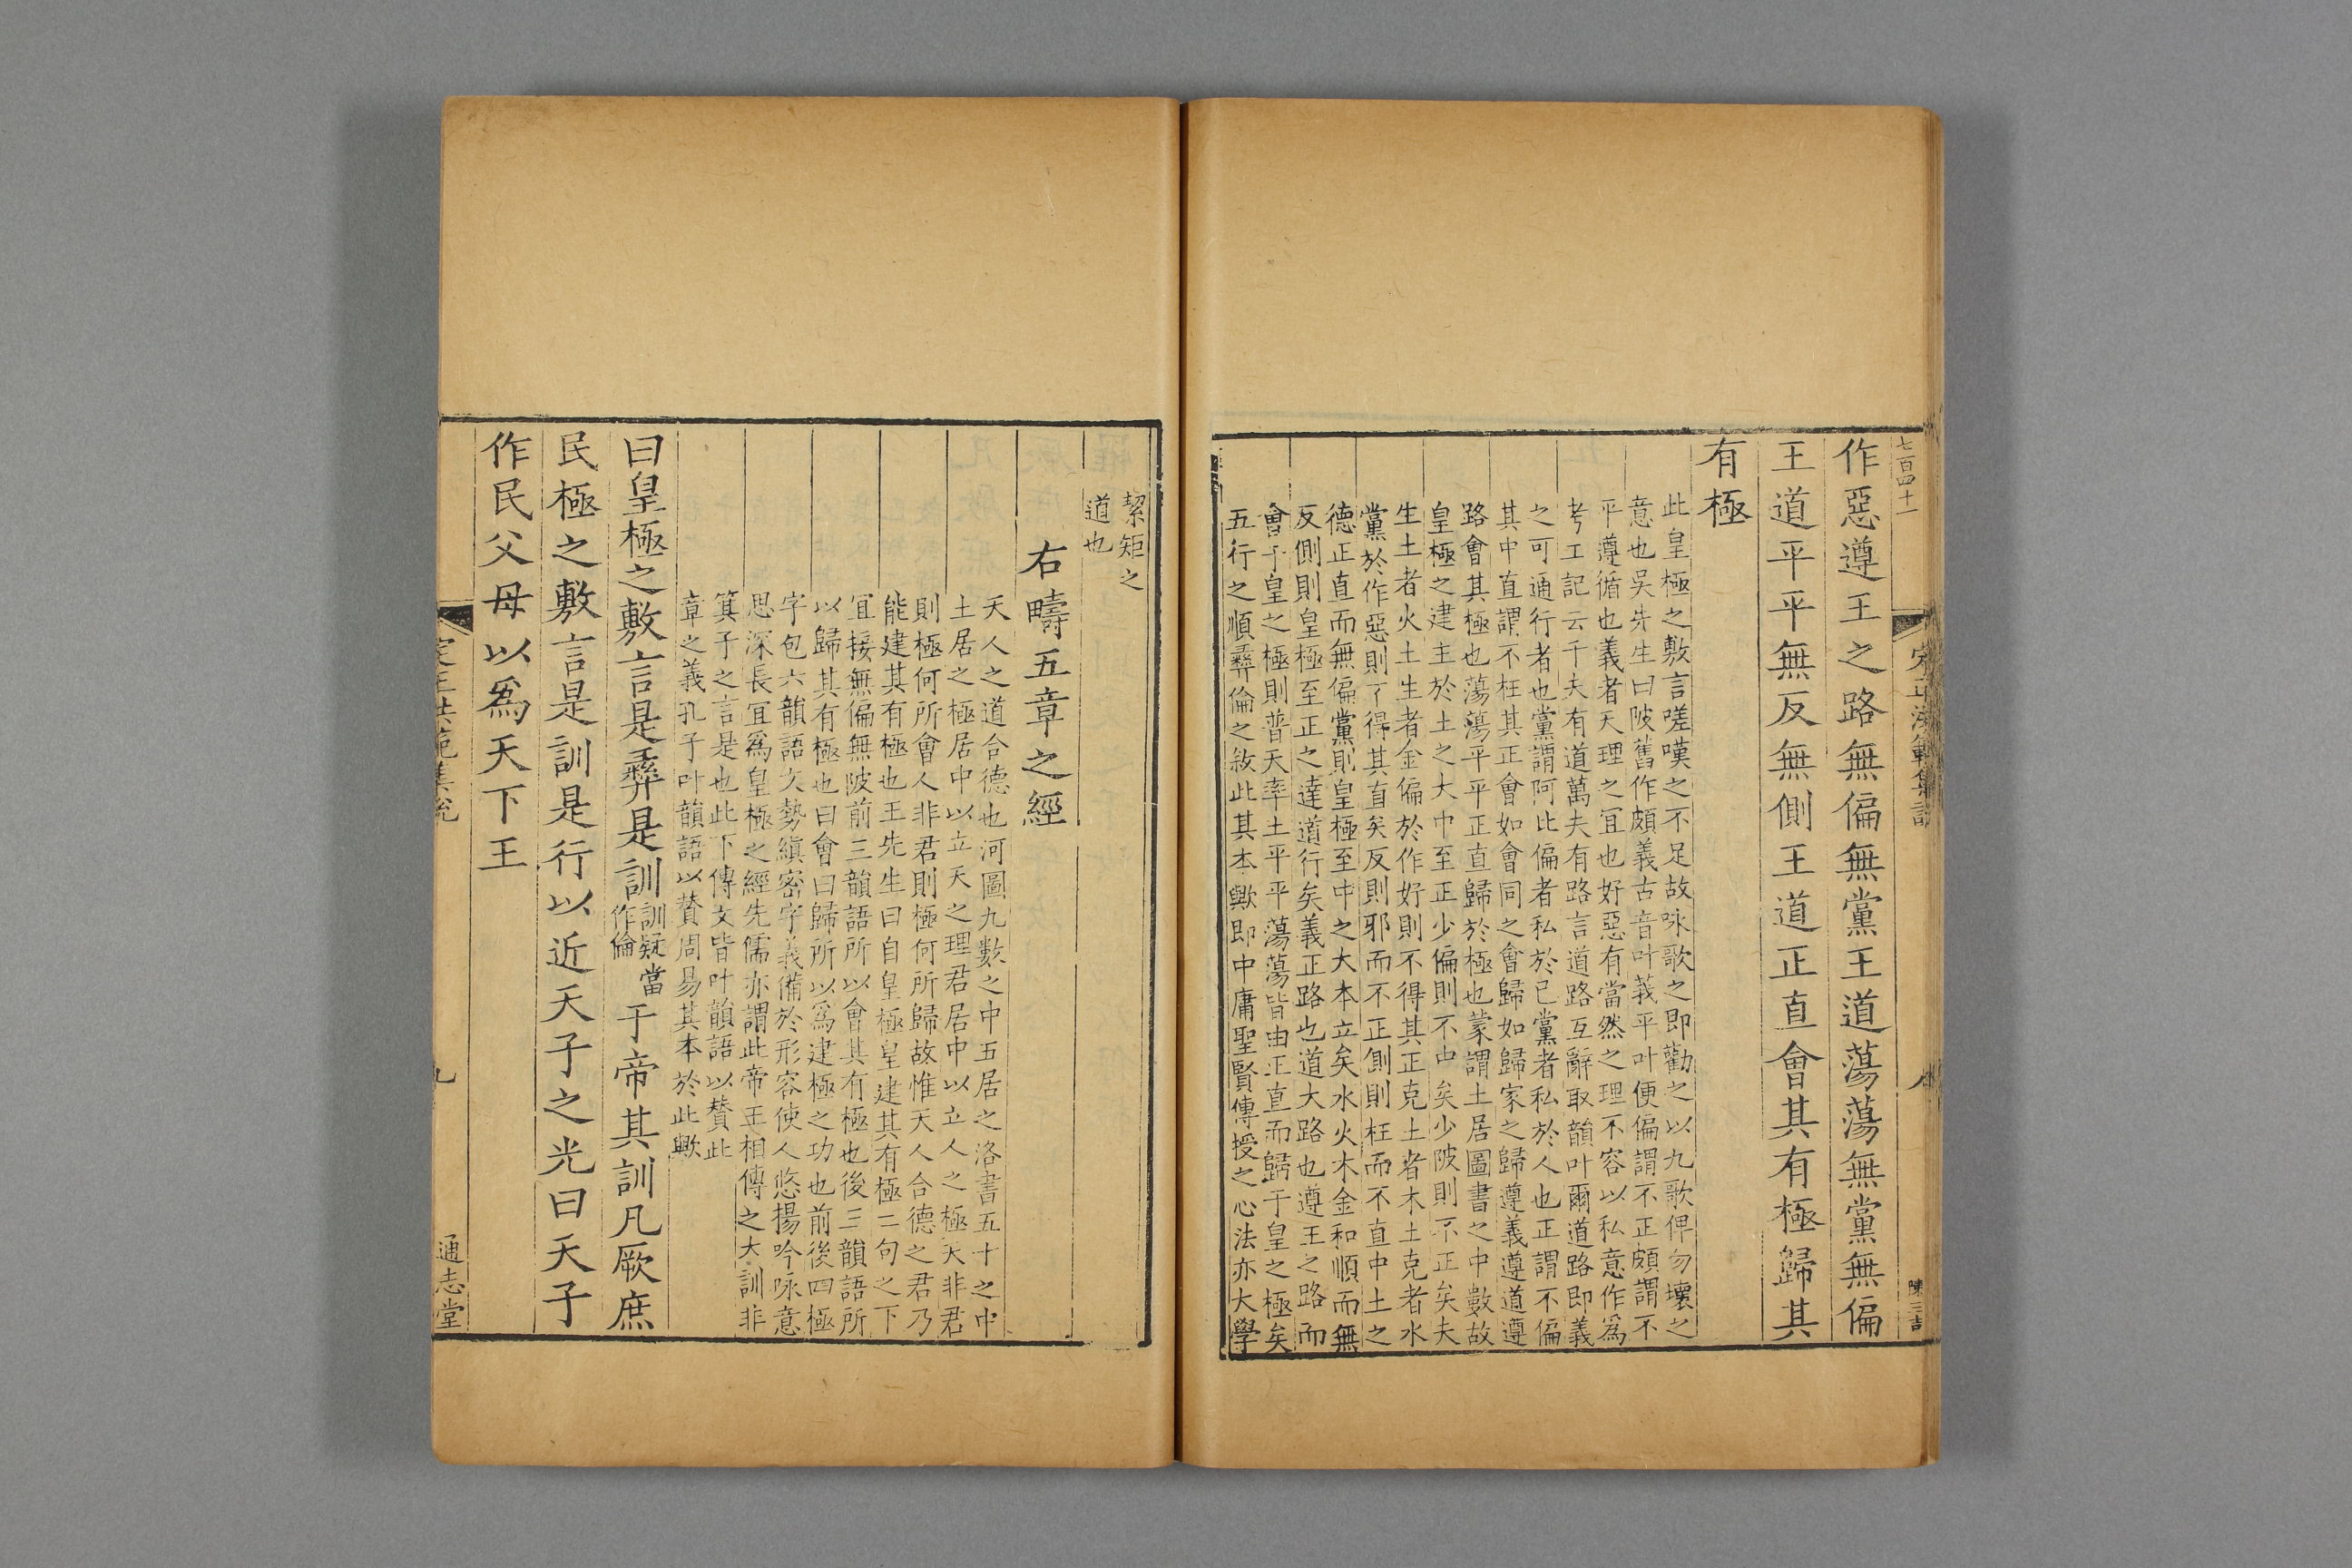 七百四十一
作惡遵王之路無偏無黨王道蕩蕩無黨無偏
王道平平無反無側王道正直會其有極歸其
有極
此皇極之敷言嗟嘆之不足故咏歌之即勸之以九歌俾勿壞之
意也吳先生曰陂舊作頗義古音叶莪平叶便偏謂不正頗謂不
平遵循也義者天理之宜也好惡有當然之理不容以私意作爲
考工記云千夫有道萬夫有路言道路互辭取韻叶爾道路即義
之可通行者也黨謂阿比偏者私於已黨者私於人也正謂不偏
其中直謂不枉其正會如會同之會歸如歸家之歸遵義遵道遵
路會其極也蕩蕩平平正直歸於極也蒙謂土居圖書之中數故
皇極之建主於土之大中至正少偏則不中矣少陂則不正矣夫
生土者火土生者金偏於作好則不得其正克土者木土克者水
黨於作惡則了得其直矣反則邪而不正側則枉而不直中土之
德正直而無偏黨則皇極至中之大本立矣水火木金和順而無
反側則皇極至正之達道行矣義正路也道大路也遵王之路而
會于皇之極則普天率土平平蕩蕩皆由正直而歸于皇之極矣
五行之順彞倫之敘此其本歟即中庸聖賢傳授之心法亦大學
陳三吉
絜矩之
道也
右疇五章之經
天人之道合德也河圖九數之中五居之洛書五十之中
土居之極居中以立天之理君居中以立人之極天非君
則極何所會人非君則極何所歸故惟天人合德之君乃
能建其有極也王先生曰自皇極皇建其有極二句之下
宜接無偏無陂前三韻語所以會其有極也後三韻語所
以歸其有極也曰會曰歸所以爲建極之功也前後四極
字包六韻語文勢縝密字義備於形容使人悠揚吟咏意
思深長宜爲皇極之經先儒亦謂此帝王相傳之大訓非
箕子之言是也此下傳文皆叶韻語以贊此
章之義孔子叶韻語以贊周易其本於此歟
曰皇極之敷言是彞是訓訓疑當作倫于帝其訓凡厥庶
民極之敷言是訓是行以近天子之光曰天子
作民父母以爲天下王
九
通志堂